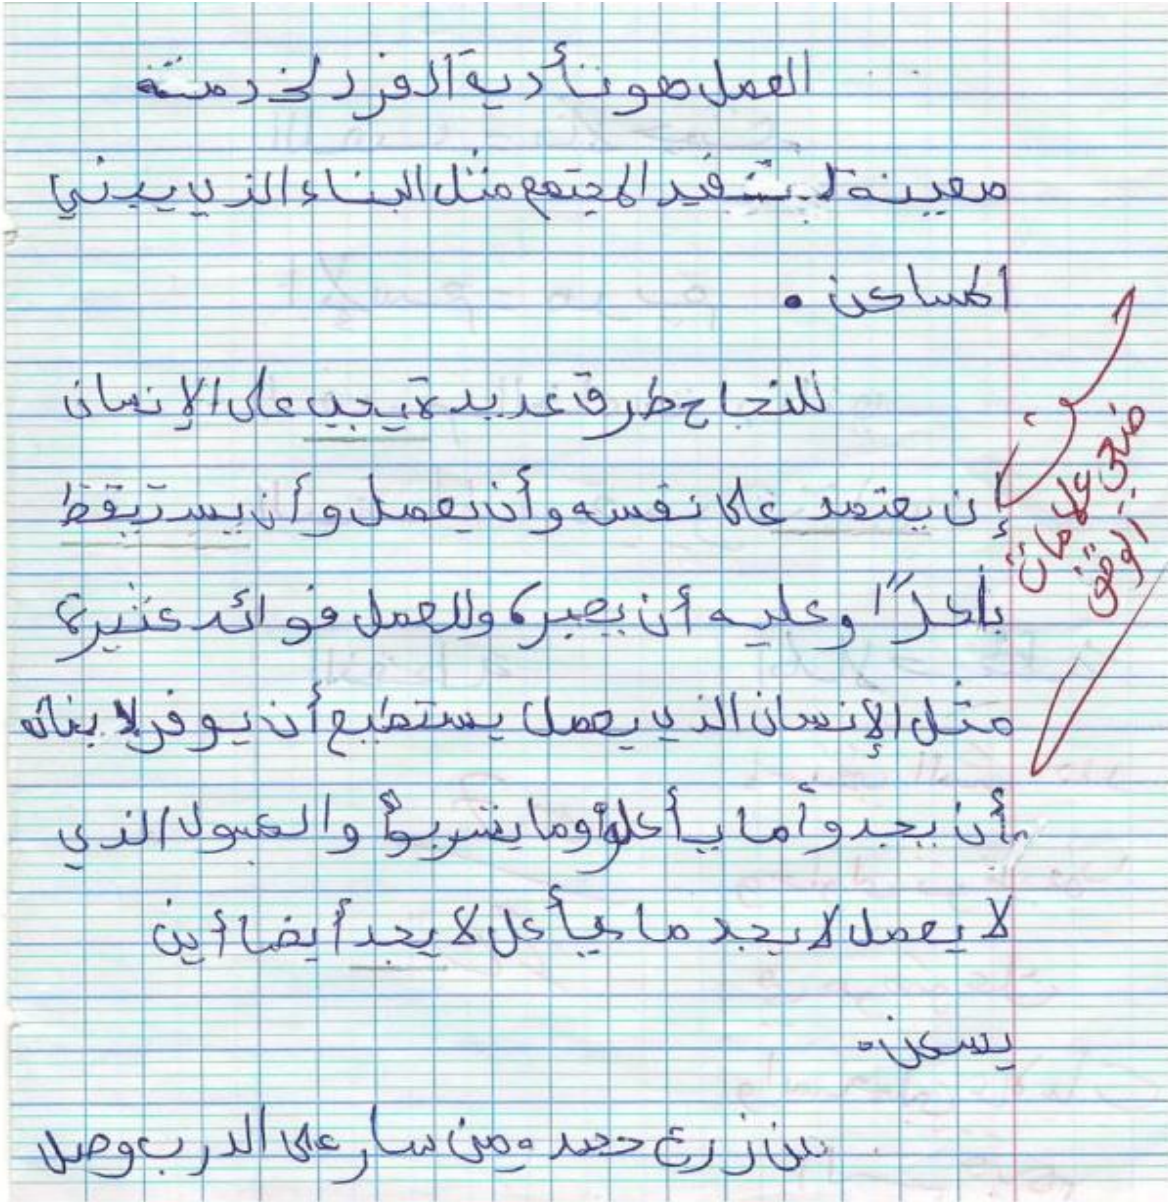 العمل هو تأدية الفرد لخدمته
معينة ليستفيد المجتمع مثل البناء الذي يبني
المساكن .
للنجاح طرق عديدة يجب على الإنسان
إن يعتمد على نفسه وأن يعمل وأن يستيقظ
باكرًا وعليه أن يصبر، وللعمل فوائد كثيرة
مثل الإنسان الذي يعمل يستطيع أن يوفر لابنائه
أن يجدوا ما يأكلوا وما يشربوا والكسول الذي
لا يعمل لا يجد ما يأكل لا يجد أيضا أين
يسكن.
من زرع حصد ومن سار على الدرب وصل
ضحي كلمات